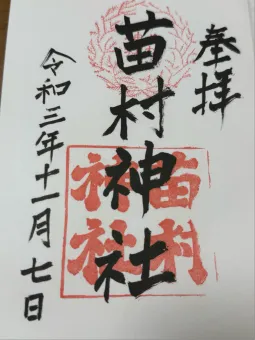 奉拝
苗村神社
苗村
神社
令和三年十一月七日